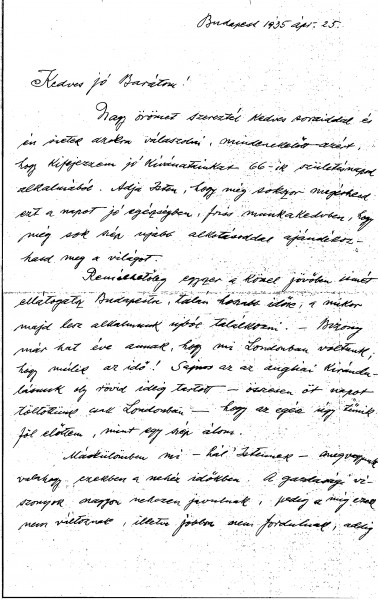 Budapest 1935 ápr. 25.
Kedves jó Barátom!
Nagy örömet szereztél kedves soraiddal és
én sietek azokra válaszolni, mindenekelőtt azért,
hogy kifejezzem jó kívánatainkat 66-ik születésnapod
alkalmából. Adja Isten, hogy még sokszor megérhesd
ezt a napot jó egészségben, friss munkakedvben, hogy
még sok szép ujabb alkotásoddal ajándékoz-
hasd meg a világot.
Remélhetőleg egyszer a közel jövőben ismét
ellátogatsz Budapestre, talán hosszabb időre, a mikor
majd lesz alkalmunk ujból találkozni. — Bizony
már hat éve annak, hogy mi Londonban voltunk,
hogy múlik az idő! Sajnos az az angliai kirándu-
lásunk oly rövid ideig tartott — összesen öt napot
töltöttünk csak Londonban — hogy az egész úgy tűnik
föl előttem, mint egy szép álom.
Máskülönben mi — hál' Istennek — megvagyunk
valahogy, ezekben a nehéz időkben. A gazdasági vi-
szonyok nagyon nehezen javulnak, pedig a míg ezek
nem változnak, illetve jobbra nem fordulnak, addig